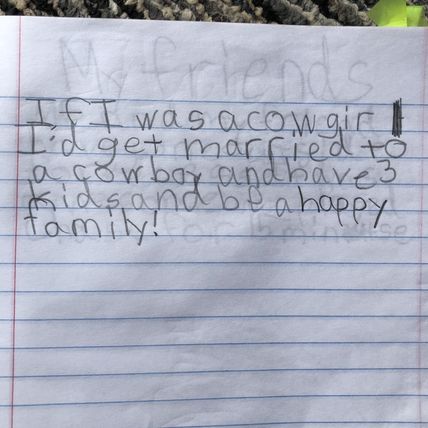 My friends
If I was a cowgirl
I'd get married to
a cowboy and have 3
kids and be a happy
family!